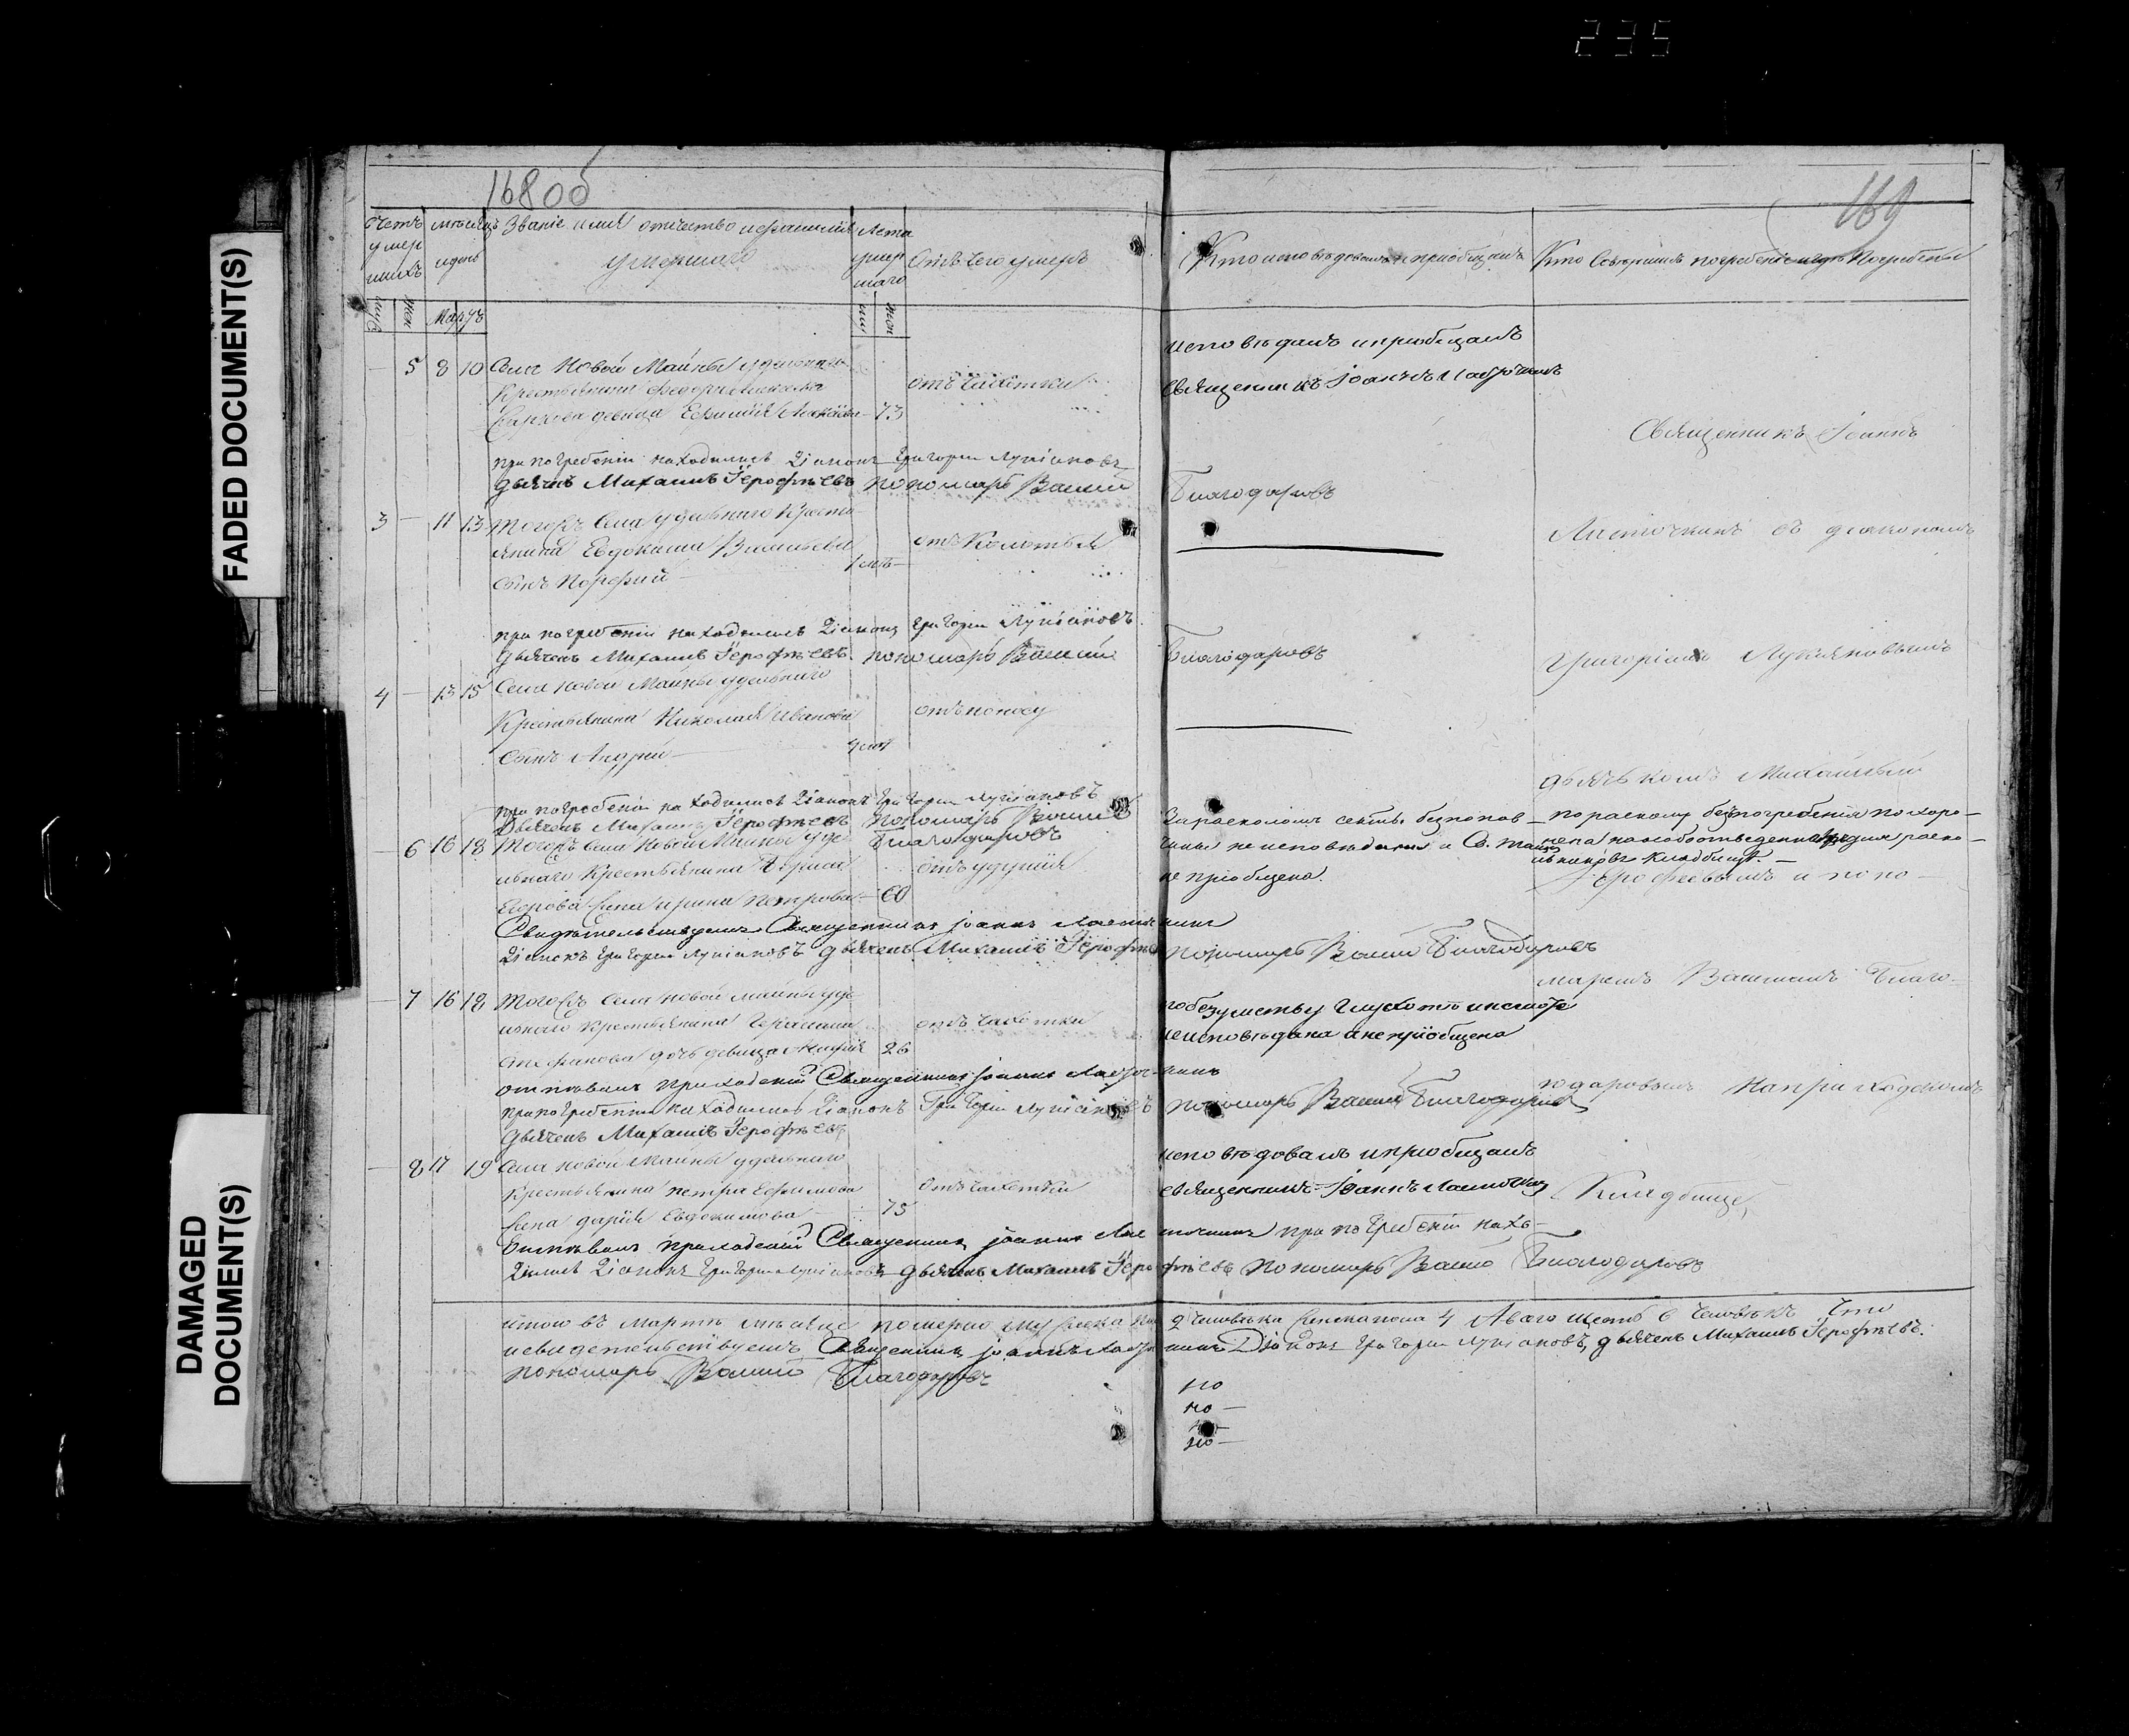 235
FADED DOCUMENT(S)
DAMAGED
DOCUMENT(S)
168 об
169
Счетъ
умер
шихъ
мѣсяцъ
и день
Званіе имя отчество и фамилія
умершаго
Лета
умер
шаго
Отъ чего умеръ
Кто исповѣдовалъ и пріобщалъ
Кто Совершилъ погребеніе и гдѣ Погребены
муж
жен
Мартъ
— 5 8 10 Села Новой Майны удѣльнаго
крестьянина
девица Ефимія 73
отъ чахотки
исповѣдалъ и пріобщалъ
Священникъ Іоаннъ
при погребеніи находились Діаконъ Григорій Лукіановъ
дьячекъ Михаилъ Іерофѣевъ пономарь Василій
Благодаровъ
Священникъ Іоаннъ
3 — 11 13 Тогожъ Села удѣльнаго Кресть
янина Евдокима Васильева
сынъ Порфирій
отъ Колотья
Ласточкинъ съ діакономъ
при погребеніи находились Діаконъ Григорій Лукіановъ
дьячекъ Михаилъ Іерофѣевъ пономарь Василій
Благодаровъ
Григоріемъ Лукіяновымъ
4 — 13 15 Села Новой Майны удѣльнаго
Крестьянина Николая Иванова
сынъ Андрей
отъ поносу
дьячькомъ Михаиломъ
при погребеніи находились Діаконъ Григорій Лукіановъ
Дьячекъ Михаилъ Іерофѣевъ Пономарь Василій
Благодаровъ
— 6 16 18 Тогожъ Села Новой Майны удѣ
льнаго Крестьянина
Егорова жена Ирина Петрова — 60
отъ удушія
За расколомъ секты безпопов—
чины не исповѣдана и Св. Таинъ
не пріобщена.
по расколу безъ погребенія похоро—
нена на особо отведенномъ для раско—
льниковъ кладбищѣ. —
Ерофеевымъ и поно—
Свидѣтельствуемъ Священникъ Іоаннъ Ласточкинъ
Діаконъ Григорій Лукіановъ дьячекъ Михаилъ Іерофѣевъ пономарь Василій Благодаровъ
маремъ Васильемъ Благо—
— 7 16 18 Тогожъ Села Новой Майны удѣ
льнаго Крестьянина Герасима
Стефанова дочь девица 26
отъ чахотки
по безумству глухотѣ и немотѣ
не исповѣдана и не пріобщена
отпѣвалъ приходскій Священникъ Іоаннъ Ласточкинъ
при погребеніи находились Діаконъ Григорій Лукіановъ пономарь Василій Благодаровъ
дьячекъ Михаилъ Іерофѣевъ
годаровымъ На приходскомъ
— 8 17 19 Села Новой Майны удѣльнаго
Крестьянина Петра Ефимова
жена Дарія Евдокимова 75
отъ чахотки
исповѣдовалъ и пріобщалъ
священникъ Іоаннъ Ласточкинъ
Кладбище,
Отпѣвалъ приходскій Священникъ Іоаннъ Ласточкинъ при погребеніи нахо—
дились Діаконъ Григорій Лукіановъ дьячекъ Михаилъ Іерофѣевъ пономарь Василій Благодаровъ
Итого въ Мартѣ мѣсяце померло мужеска пола 2 человѣка женска пола 4 А всего шесть 6 человѣкъ Что
и свидетельствуемъ Священникъ Іоаннъ Ласточкинъ Діаконъ Григорій Лукіановъ, дьячекъ Михаилъ Іерофѣевъ.
пономарь Василій Благодаровъ
по
по —
по —